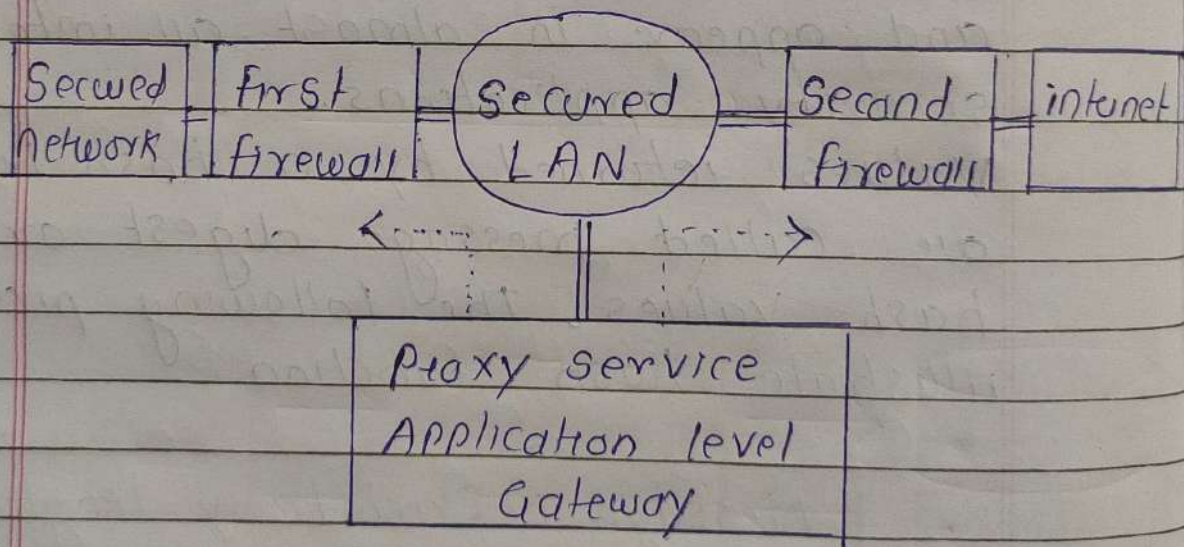 Secured
network
first
firewall
Secured
LAN
Secand
firewall
intunet
Proxy service
Application level
Gateway